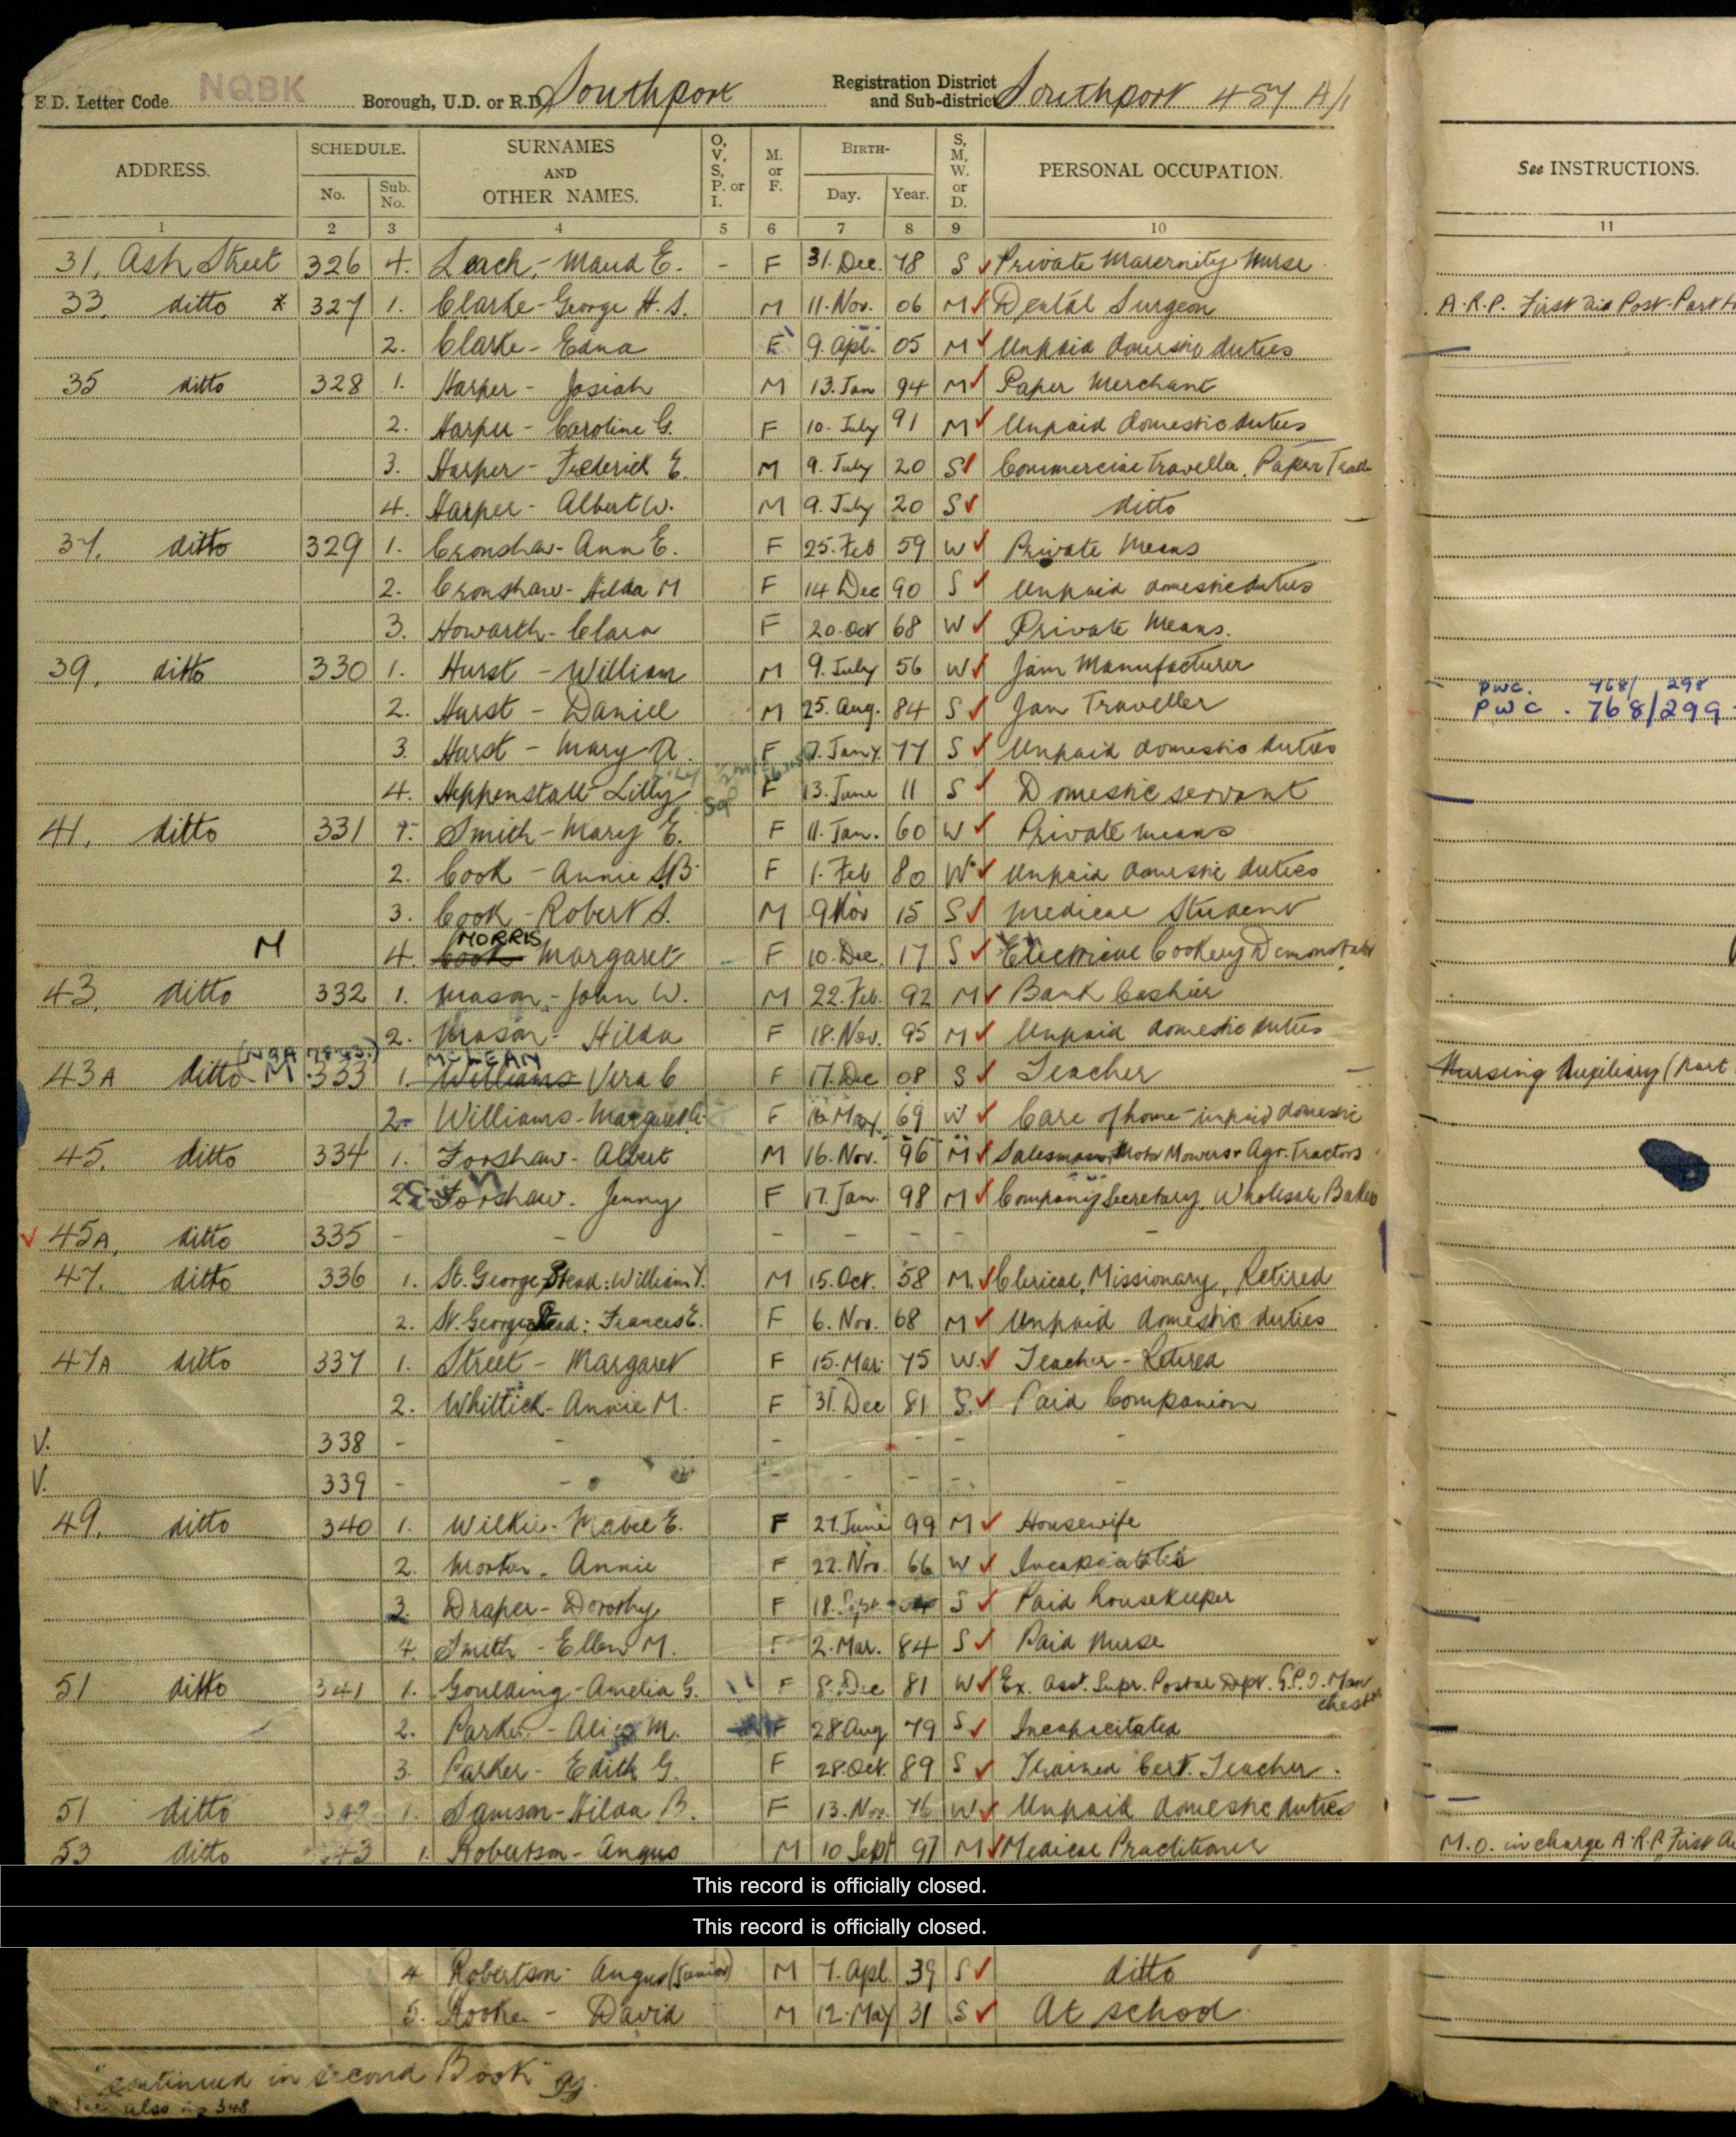 E.D. Letter Code NQBK Borough, U.D. or R.D. Southport Registration District and Sub-district Southport 457 A/1
ADDRESS. SCHEDULE. No. Sub. No. SURNAMES AND OTHER NAMES. O, V, S, P. or I. M. or F. BIRTH- Day. Year. S, M, W. or D. PERSONAL OCCUPATION. See INSTRUCTIONS.
1 2 3 4 5 6 7 8 9 10 11
31, Ash Street 326 4. Leach, - Maud E. - F 31. Dec. 78 S Private Maternity Nurse
33, ditto * 327 1. Clarke - George H. S. M 11. Nov. 06 M Dental Surgeon A.R.P. First Aid Post. Part
2. Clarke - Edna F 9. Apl. 05 M Unpaid domestic duties
35 ditto 328 1. Harper - Josiah M 13. Jan 94 M Paper Merchant
2. Harper - Caroline G. F 10. July 91 M Unpaid domestic duties
3. Harper - Frederick E. M 9. July 20 S Commercial Traveller, Paper Trade
4. Harper - Albert W. M 9. July 20 S ditto
37. ditto 329 1. Cronshaw - Ann E. F 25. Feb 59 W Private Means
2. Cronshaw - Hilda M F 14 Dec 90 S Unpaid domestic duties
3. Howarth - Clara F 20. Oct 68 W Private Means.
39, ditto 330 1. Hurst - William M 9. July 56 W Jam Manufacturer
PWC. 768/ 298
2. Hurst - Daniel M 25. Aug. 84 S Jam Traveller PWC. 768/299
3. Hurst - Mary A. F 7. Jany. 77 S Unpaid domestic duties
4. Heppenstall - Lilly F 13. June 11 S Domestic servant
41, ditto 331 1. Smith - Mary E. F 11. Jan. 60 W Private means
2. Cook - Annie S.B. F 1. Feb 80 W Unpaid domestic duties
3. Cook - Robert S. M 9 Nov 15 S Medical Student
MORRIS
M 4. Cook Margaret - F 10. Dec. 17 S Electrical Cookery Demonstrator
43, ditto 332 1. Mason, - John W. M 22. Feb. 92 M Bank Cashier
2. Mason - Hilda F 18. Nov. 95 M Unpaid domestic duties
McLEAN
43A ditto M 333 1. Williams Vera C F 17. Dec 08 S Teacher Nursing Auxiliary (part
2. Williams - Margaret F May. 69 W Care of home - unpaid domestic
45, ditto 334 1. Forshaw - Albert M 16. Nov. 96 M Salesman, Motor Mowers & Agr. Tractors
2. Forshaw. Jenny F 17. Jan. 98 M Company Secretary, Wholesale Bakers
45A, ditto 335 - - - - - - -
47. ditto 336 1. St. George Stead: William Y. M 15. Oct. 58 M. Clerical, Missionary, Retired
2. St. George Stead: Frances E. F 6. Nov. 68 M Unpaid domestic duties
47A ditto 337 1. Street - Margaret F 15. Mar. 75 W. Teacher - Retired
2. Whittick - Annie M. F 31. Dec 81 S. Paid Companion
V. 338 - - - - - -
V. 339 - - - - - - -
49. ditto 340 1. Wilkie - Mabel E. F 27. June 99 M Housewife
2. Morton - Annie F 22. Nov. 66 W Incapacitated
3. Draper - Dorothy F 18. Sept S Paid housekeeper
4. Smith - Ellen M. F 2. Mar. 84 S Paid Nurse
51 ditto 341 1. Goulding - Amelia G. F 8. Dec 81 W Ex. Asst. Supr. Postal Dept. G.P.O. Manchester
2. Parker - Alice M. F 28 Aug 79 S Incapacitated
3. Parker - Edith G. F 28. Oct. 89 S Trained Cert. Teacher.
51 ditto 342 1. Samson - Hilda B. F 13. Nov. 76 W Unpaid domestic duties
53 ditto 343 1. Robertson - Angus M 10 Sept 97 M Medical Practitioner M.O. in charge A.R.P. First
This record is officially closed.
This record is officially closed.
4 Robertson - Angus (Junior) M 7. Apl. 39 S ditto
5. Rooke - David M 12. May 31 S At school
"continued in second Book"
See also 348